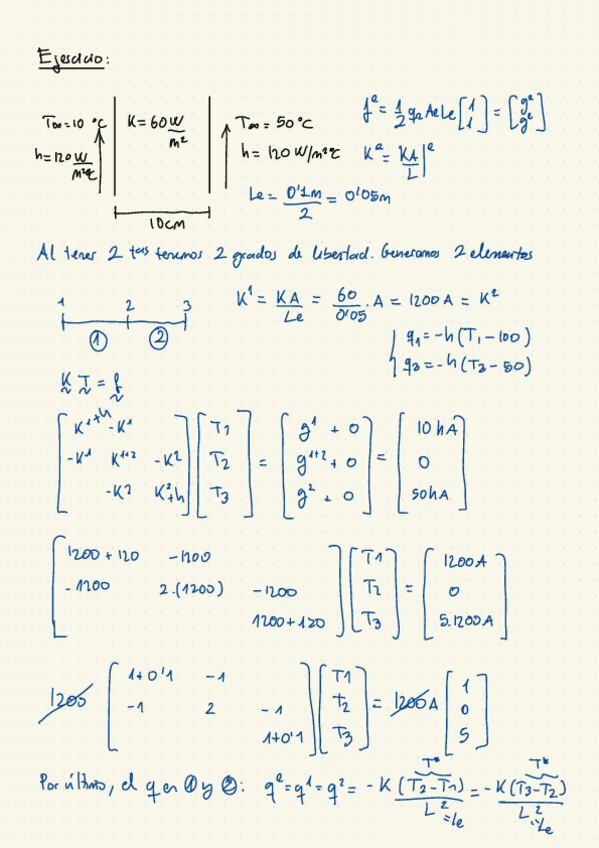 Ejercicio:
T∞ = 10 °C
h = 120 W/m²°C
K = 60 W/m²
T∞ = 50 °C
h = 120 W/m²°C
10 cm
fᵉ = 1/2 q₂ Ae Le [1 1] = [gᵉ gᵉ]
Kᵉ = KA/L |ᵉ
Le = 0'1m/2 = 0'05m
Al tener 2 tas tenemos 2 grados de libertad. Generamos 2 elementos
1 2 3
① ②
K¹ = KA/Le = 60/0'05 · A = 1200 A = K²
q₁ = -h (T₁ - 100)
q₃ = -h (T₃ - 50)
K T = f
[K¹+h -K¹] [T1] = [g¹ + 0] = [10 hA]
[-K¹ K¹⁺² -K²] [T2] = [g¹⁺² + 0] = [0]
[-K2 K²+h] [T3] = [g² + 0] = [50hA]
[1200 + 120 -1200] [T1] = [1200A]
[-1200 2·(1200) -1200] [T2] = [0]
[1200+120] [T3] = [5.1200A]
1200 [1+0'1 -1] [T1] = 1200A [1]
[-1 2 -1] [T2] = [0]
[1+0'1] [T3] = [5]
Por último, el q en ① y ②: qᵉ = q¹ = q² = -K (T2-T1)/L²=Le = -K (T3-T2)/L²=Le
T* T*